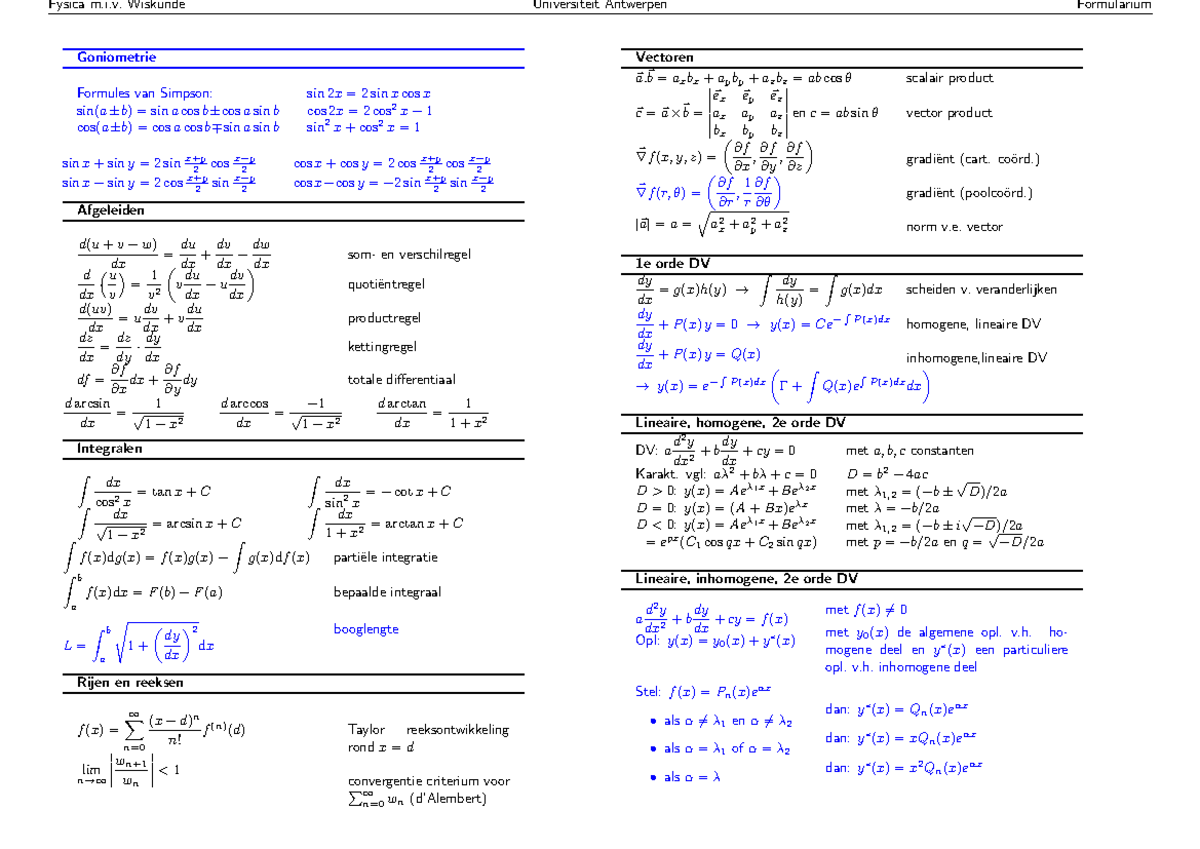 Fysica m.i.v. Wiskunde Universiteit Antwerpen Formularium
Goniometrie
Formules van Simpson: sin 2x = 2 sin x cos x
sin(a±b) = sin a cos b ± cos a sin b cos 2x = 2 cos² x − 1
cos(a±b) = cos a cos b ∓ sin a sin b sin² x + cos² x = 1
sin x + sin y = 2 sin (x+y)/2 cos (x−y)/2 cos x + cos y = 2 cos (x+y)/2 cos (x−y)/2
sin x − sin y = 2 cos (x+y)/2 sin (x−y)/2 cos x − cos y = −2 sin (x+y)/2 sin (x−y)/2
Afgeleiden
d(u + v − w)/dx = du/dx + dv/dx − dw/dx som- en verschilregel
d/dx (u/v) = 1/v² (v du/dx − u dv/dx) quotiëntregel
d(uv)/dx = u dv/dx + v du/dx productregel
dz/dx = dz/dy · dy/dx kettingregel
df = ∂f/∂x dx + ∂f/∂y dy totale differentiaal
d arcsin/dx = 1/√(1 − x²) d arccos/dx = −1/√(1 − x²) d arctan/dx = 1/(1 + x²)
Integralen
∫ dx/cos² x = tan x + C ∫ dx/sin² x = − cot x + C
∫ dx/√(1 − x²) = arcsin x + C ∫ dx/(1 + x²) = arctan x + C
∫ f(x)dg(x) = f(x)g(x) − ∫ g(x)df(x) partiële integratie
∫_a^b f(x)dx = F(b) − F(a) bepaalde integraal
L = ∫_a^b √(1 + (dy/dx)²) dx booglengte
Rijen en reeksen
f(x) = ∑_{n=0}^∞ (x − d)ⁿ/n! f⁽ⁿ⁾(d) Taylor reeksontwikkeling
rond x = d
lim_{n→∞} |w_{n+1}/w_n| < 1 convergentie criterium voor
∑_{n=0}^∞ w_n (d'Alembert)
Vectoren
a⃗.b⃗ = a_x b_x + a_y b_y + a_z b_z = ab cos θ scalair product
c⃗ = a⃗ × b⃗ = |e⃗_x e⃗_y e⃗_z; a_x a_y a_z; b_x b_y b_z| en c = ab sin θ vector product
∇⃗ f(x, y, z) = (∂f/∂x, ∂f/∂y, ∂f/∂z) gradiënt (cart. coörd.)
∇⃗ f(r, θ) = (∂f/∂r, 1/r ∂f/∂θ) gradiënt (poolcoörd.)
|a⃗| = a = √(a_x² + a_y² + a_z²) norm v.e. vector
1e orde DV
dy/dx = g(x)h(y) → ∫ dy/h(y) = ∫ g(x)dx scheiden v. veranderlijken
dy/dx + P(x)y = 0 → y(x) = Ce^{−∫P(x)dx} homogene, lineaire DV
dy/dx + P(x)y = Q(x) inhomogene,lineaire DV
→ y(x) = e^{−∫P(x)dx} (Γ + ∫ Q(x)e^{∫P(x)dx}dx)
Lineaire, homogene, 2e orde DV
DV: a d²y/dx² + b dy/dx + cy = 0 met a, b, c constanten
Karakt. vgl: aλ² + bλ + c = 0 D = b² − 4ac
D > 0: y(x) = Ae^{λ₁x} + Be^{λ₂x} met λ₁,₂ = (−b ± √D)/2a
D = 0: y(x) = (A + Bx)e^{λx} met λ = −b/2a
D < 0: y(x) = Ae^{λ₁x} + Be^{λ₂x} met λ₁,₂ = (−b ± i√−D)/2a
= e^{px}(C₁ cos qx + C₂ sin qx) met p = −b/2a en q = √−D/2a
Lineaire, inhomogene, 2e orde DV
a d²y/dx² + b dy/dx + cy = f(x) met f(x) ≠ 0
Opl: y(x) = y₀(x) + y*(x) met y₀(x) de algemene opl. v.h. ho-
mogene deel en y*(x) een particuliere
opl. v.h. inhomogene deel
Stel: f(x) = Pₙ(x)e^{αx}
• als α ≠ λ₁ en α ≠ λ₂ dan: y*(x) = Qₙ(x)e^{αx}
• als α = λ₁ of α = λ₂ dan: y*(x) = xQₙ(x)e^{αx}
• als α = λ dan: y*(x) = x²Qₙ(x)e^{αx}